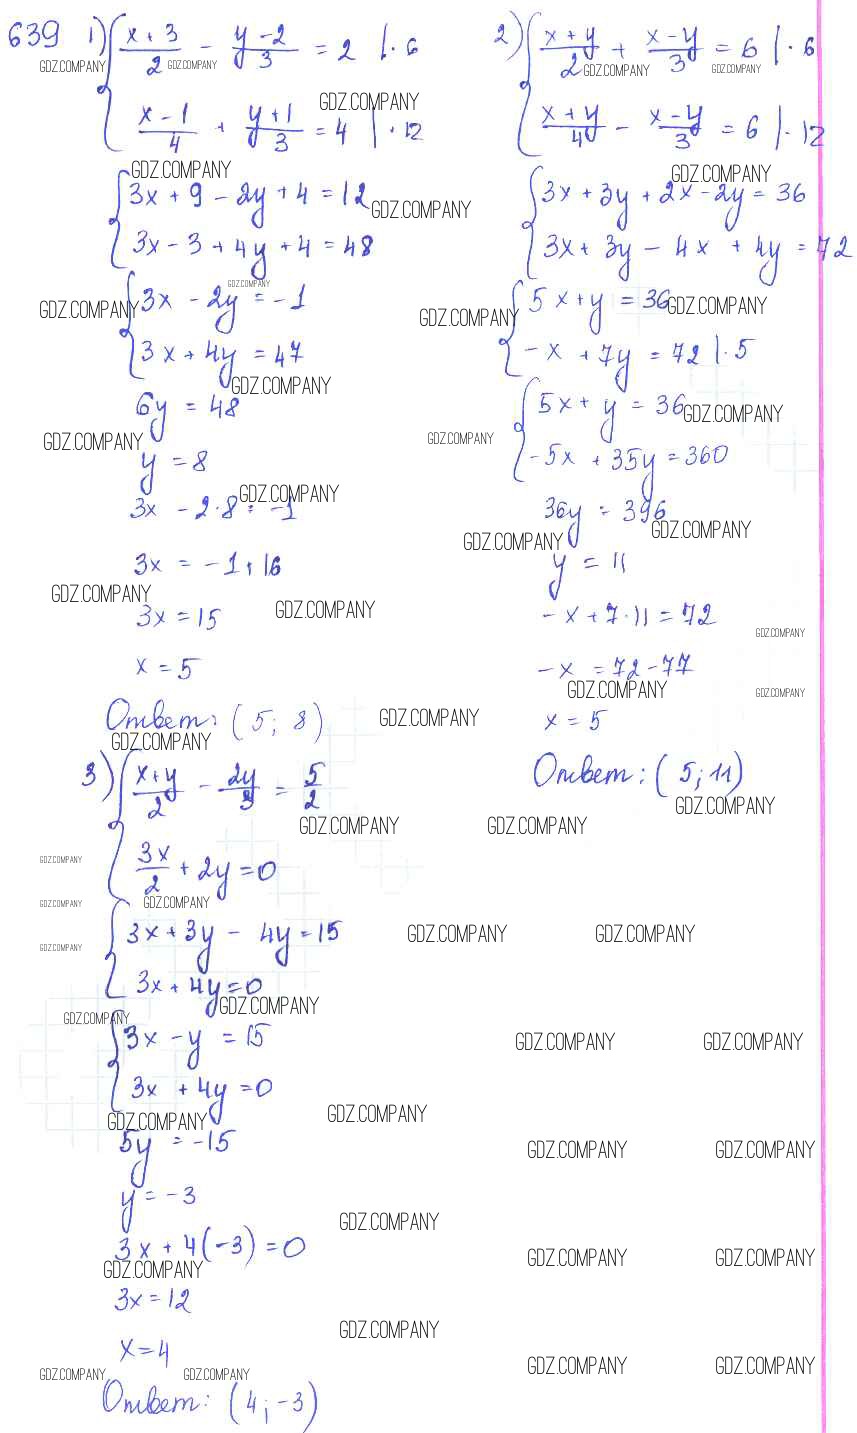 639 1) { (x + 3)/2 - (y - 2)/3 = 2 | · 6
(x - 1)/4 + (y + 1)/3 = 4 | · 12
{ 3x + 9 - 2y + 4 = 12
3x - 3 + 4y + 4 = 48
{ 3x - 2y = -1
3x + 4y = 47
6y = 48
y = 8
3x - 2 · 8 = -1
3x = -1 + 16
3x = 15
x = 5
Ответ: (5; 8)
2) { (x + y)/2 + (x - y)/3 = 6 | · 6
(x + y)/4 - (x - y)/3 = 6 | · 12
{ 3x + 3y + 2x - 2y = 36
3x + 3y - 4x + 4y = 72
{ 5x + y = 36
-x + 7y = 72 | · 5
{ 5x + y = 36
-5x + 35y = 360
36y = 396
y = 11
-x + 7 · 11 = 72
-x = 72 - 77
x = 5
Ответ: (5; 11)
3) { (x + y)/2 - 2y/3 = 5/2
3x/2 + 2y = 0
{ 3x + 3y - 4y = 15
3x + 4y = 0
{ 3x - y = 15
3x + 4y = 0
5y = -15
y = -3
3x + 4(-3) = 0
3x = 12
x = 4
Ответ: (4; -3)
GDZ.COMPANY